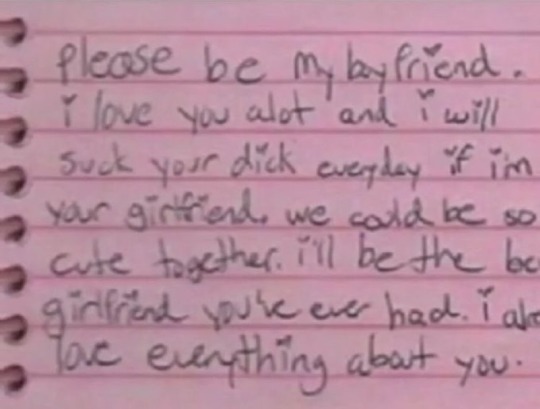 please be my boyfriend.
i love you alot and i will
suck your dick everyday if i'm
your girlfriend. we could be so
cute together. i'll be the be
girlfriend you've ever had. i als
love everything about you.